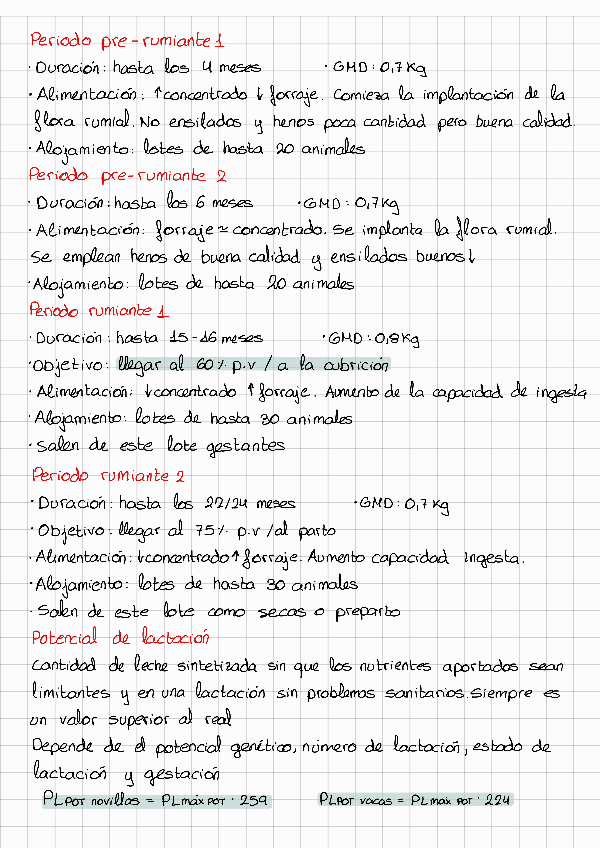 Periodo pre-rumiante 1
· Duración: hasta los 4 meses · GMD: 0,7 Kg
· Alimentación: ↑concentrado ↓ forraje. Comieza la implantación de la
flora rumial. No ensilados y henos poca cantidad pero buena calidad.
· Alojamiento: lotes de hasta 20 animales
Periodo pre-rumiante 2
· Duración: hasta los 6 meses · GMD: 0,7 Kg
· Alimentación: forraje ≈ concentrado. Se implanta la flora rumial.
Se emplean henos de buena calidad y ensilados buenos↓
· Alojamiento: lotes de hasta 20 animales
Periodo rumiante 1
· Duración: hasta 15-16 meses · GMD: 0,8 Kg
· Objetivo: llegar al 60% p.v / a la cubrición
· Alimentación: ↓concentrado ↑ forraje. Aumento de la capacidad de ingesta
· Alojamiento: lotes de hasta 30 animales
· Salen de este lote gestantes
Periodo rumiante 2
· Duración: hasta los 22/24 meses · GMD: 0,7 Kg
· Objetivo: llegar al 75% p.v /al parto
· Alimentación: ↓concentrado↑ forraje. Aumento capacidad ingesta.
· Alojamiento: lotes de hasta 30 animales
· Salen de este lote como secas o preparto
Potencial de lactación
Cantidad de leche sintetizada sin que los nutrientes aportados sean
limitantes y en una lactación sin problemas sanitarios. Siempre es
un valor superior al real
Depende de el potencial genético, número de lactación, estado de
lactación y gestación
PLPOT novillas = PLmáx POT · 259 PLPOT vacas = PLmáx POT · 224